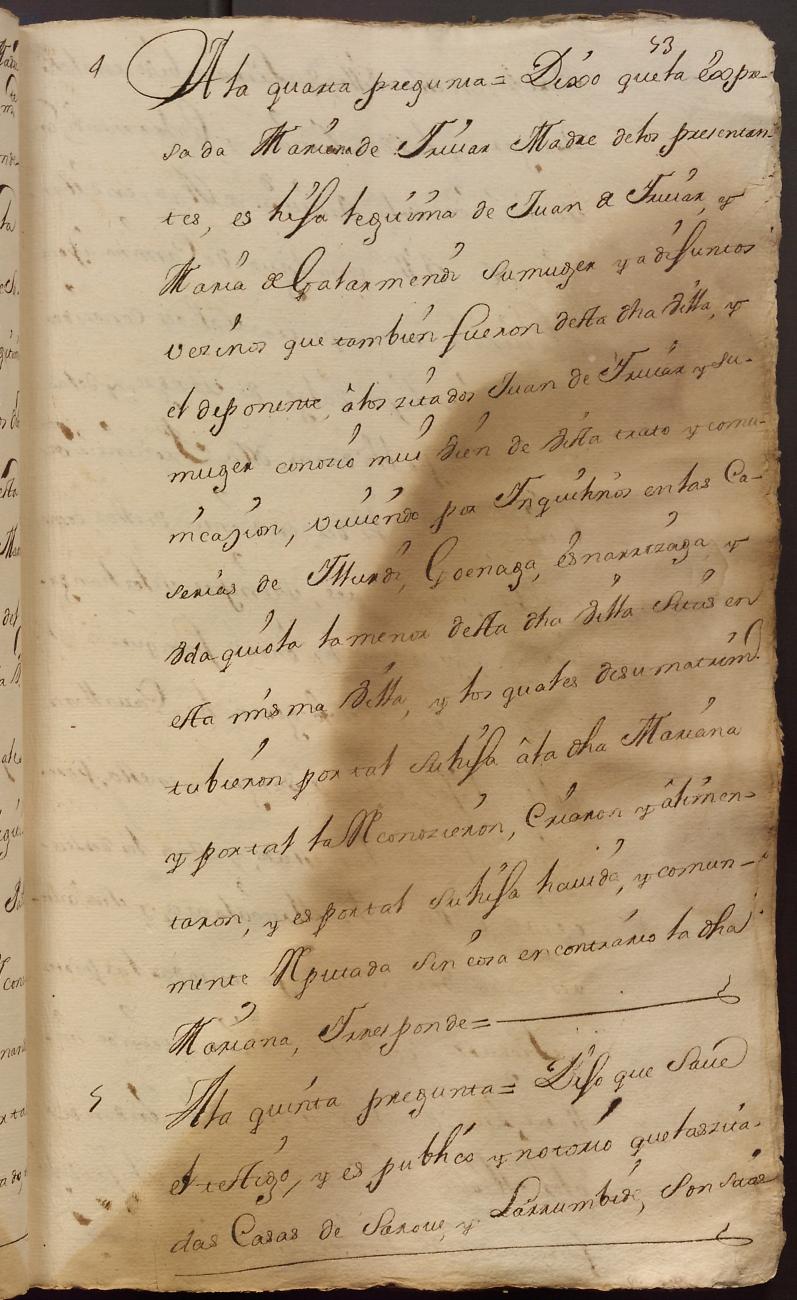 53
4 A la quarta pregunta = Dixo que la expre-
sada Mariana de Iruiar Madre de los presentan-
tes, es hisa legitima de Juan de Iruiar, y
Maria de Gatarmendi su muger ya difuntos
vezinos que tambien fueron desta dha Villa, y
el deponente, â los zitados Juan de Iruiar y su
muger conozio mui bien de vista trato y comu-
nicazion, viuiendo por Inquilinos en las Ca-
serias de Iturdi, Goenaga, esnarrizaga, y
la menor desta dha Villa sitas en
esta misma Villa, y los quales de su matrim.º
tubieron por tal su hisa â la dha Mariana
y por tal la Reconozieron, Criaron y âlimen-
taron, y es por tal su hisa hauida, y comun-
mente Reputada sin cosa en contrario la dha
Mariana, Y responde =
5 A la quinta pregunta = Diso que saue
el testigo, y es publico y notorio que las zita-
das Casas de Saroue, y Larrumbide, son sitas